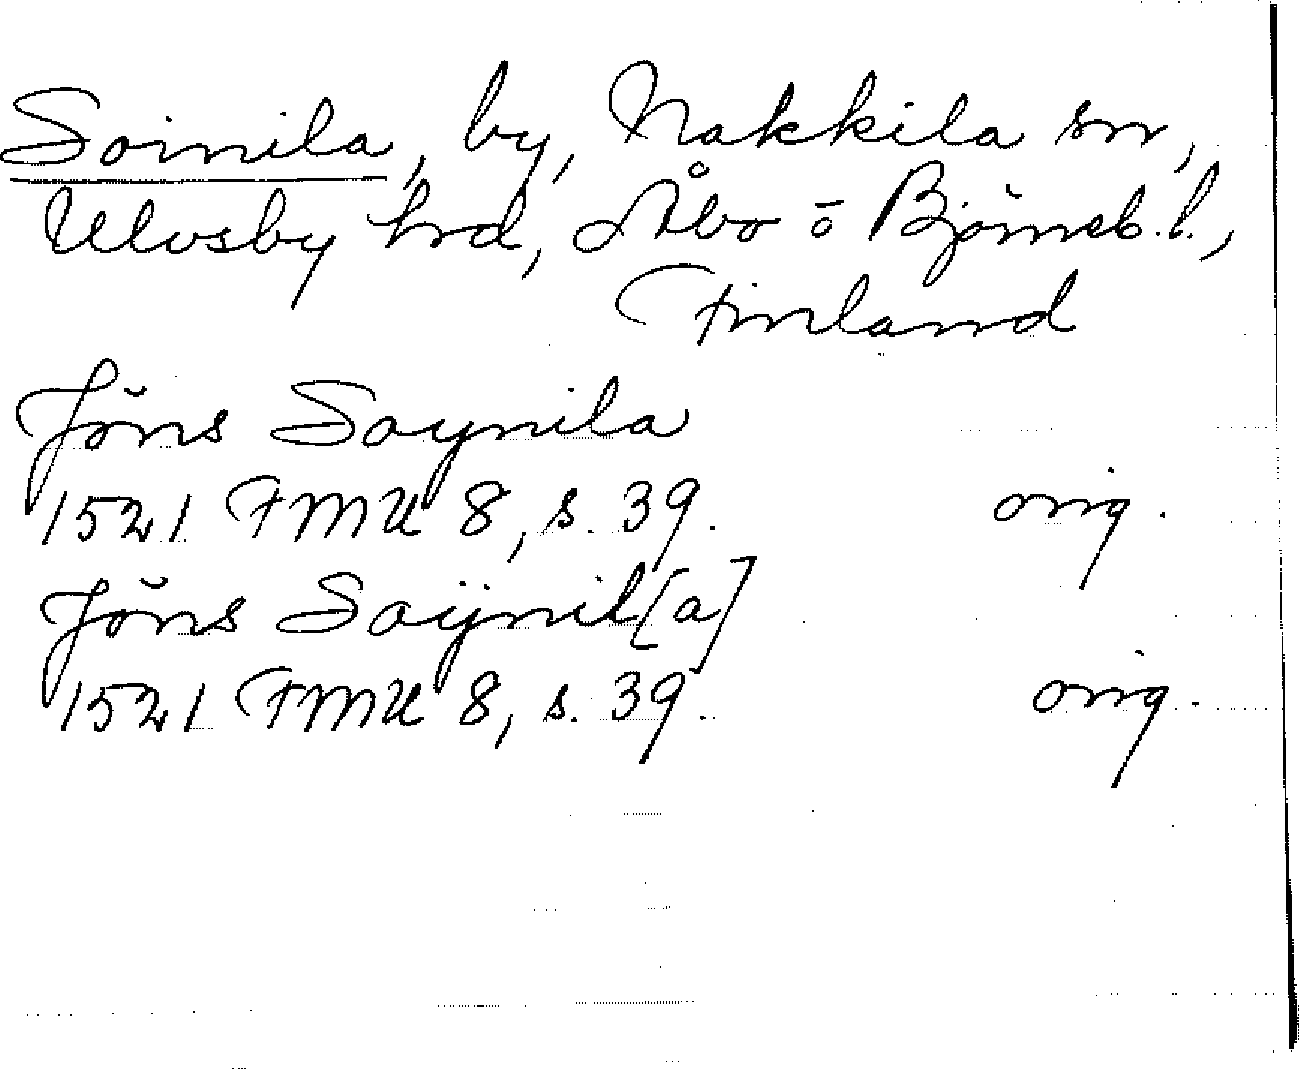 Soinila, by, Nakkila sn,
Ulvsby hrd, Åbo o Björneb. l.,
Finland
Jöns Soynila
1521 FMU 8, s. 39. orig.
Jöns Soÿnil[a]
1521 FMU 8, s. 39. orig.